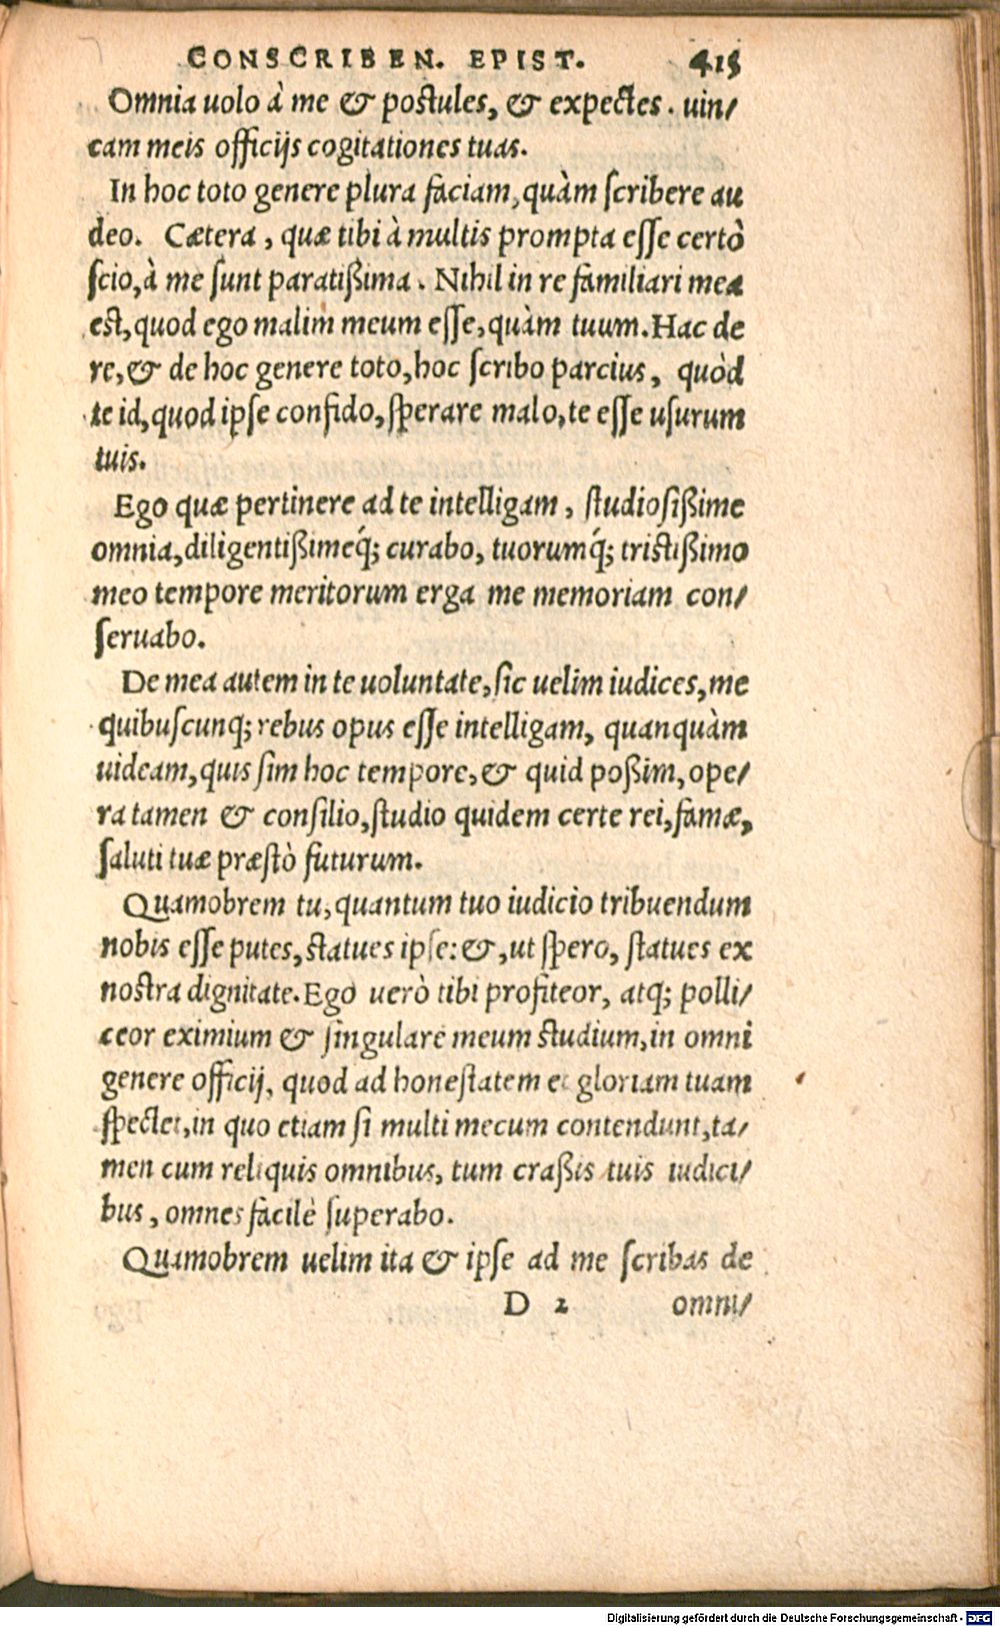 CONSCRIBEN. EPIST. 415
Omnia uolo à me & postules, & expectes. uin/
cam meis officijs cogitationes tuas.
In hoc toto genere plura faciam, quàm ſcribere au
deo. Cætera, quæ tibi à multis prompta eſſe certò
ſcio, à me ſunt paratißima. Nihil in re familiari mea
est, quod ego malim meum eſſe, quàm tuum. Hac de
re, & de hoc genere toto, hoc ſcribo parcius, quòd
te id, quod ipſe confido, ſperare malo, te eſſe uſurum
tuis.
Ego quæ pertinere ad te intelligam, ſtudioſißime
omnia, diligentißimeq́; curabo, tuorumq́; tristißimo
meo tempore meritorum erga me memoriam con/
ſeruabo.
De mea autem in te uoluntate, ſic uelim iudices, me
quibuſcunq; rebus opus eſſe intelligam, quanquàm
uideam, quis ſim hoc tempore, & quid poßim, ope/
ra tamen & conſilio, ſtudio quidem certe rei, famæ,
ſaluti tuæ præſtò futurum.
Quamobrem tu, quantum tuo iudicio tribuendum
nobis eſſe putes, statues ipſe: &, ut ſpero, ſtatues ex
nostra dignitate. Ego uerò tibi profiteor, atq; polli/
ceor eximium & ſingulare meum studium, in omni
genere officij, quod ad honeſtatem et gloriam tuam
ſpectet, in quo etiam ſi multi mecum contendunt, ta/
men cum reliquis omnibus, tum craßis tuis iudici/
bus, omnes facilè ſuperabo.
Quamobrem uelim ita & ipſe ad me ſcribas de
D 2 omni/
Digitalisierung gefördert durch die Deutsche Forschungsgemeinschaft - DFG